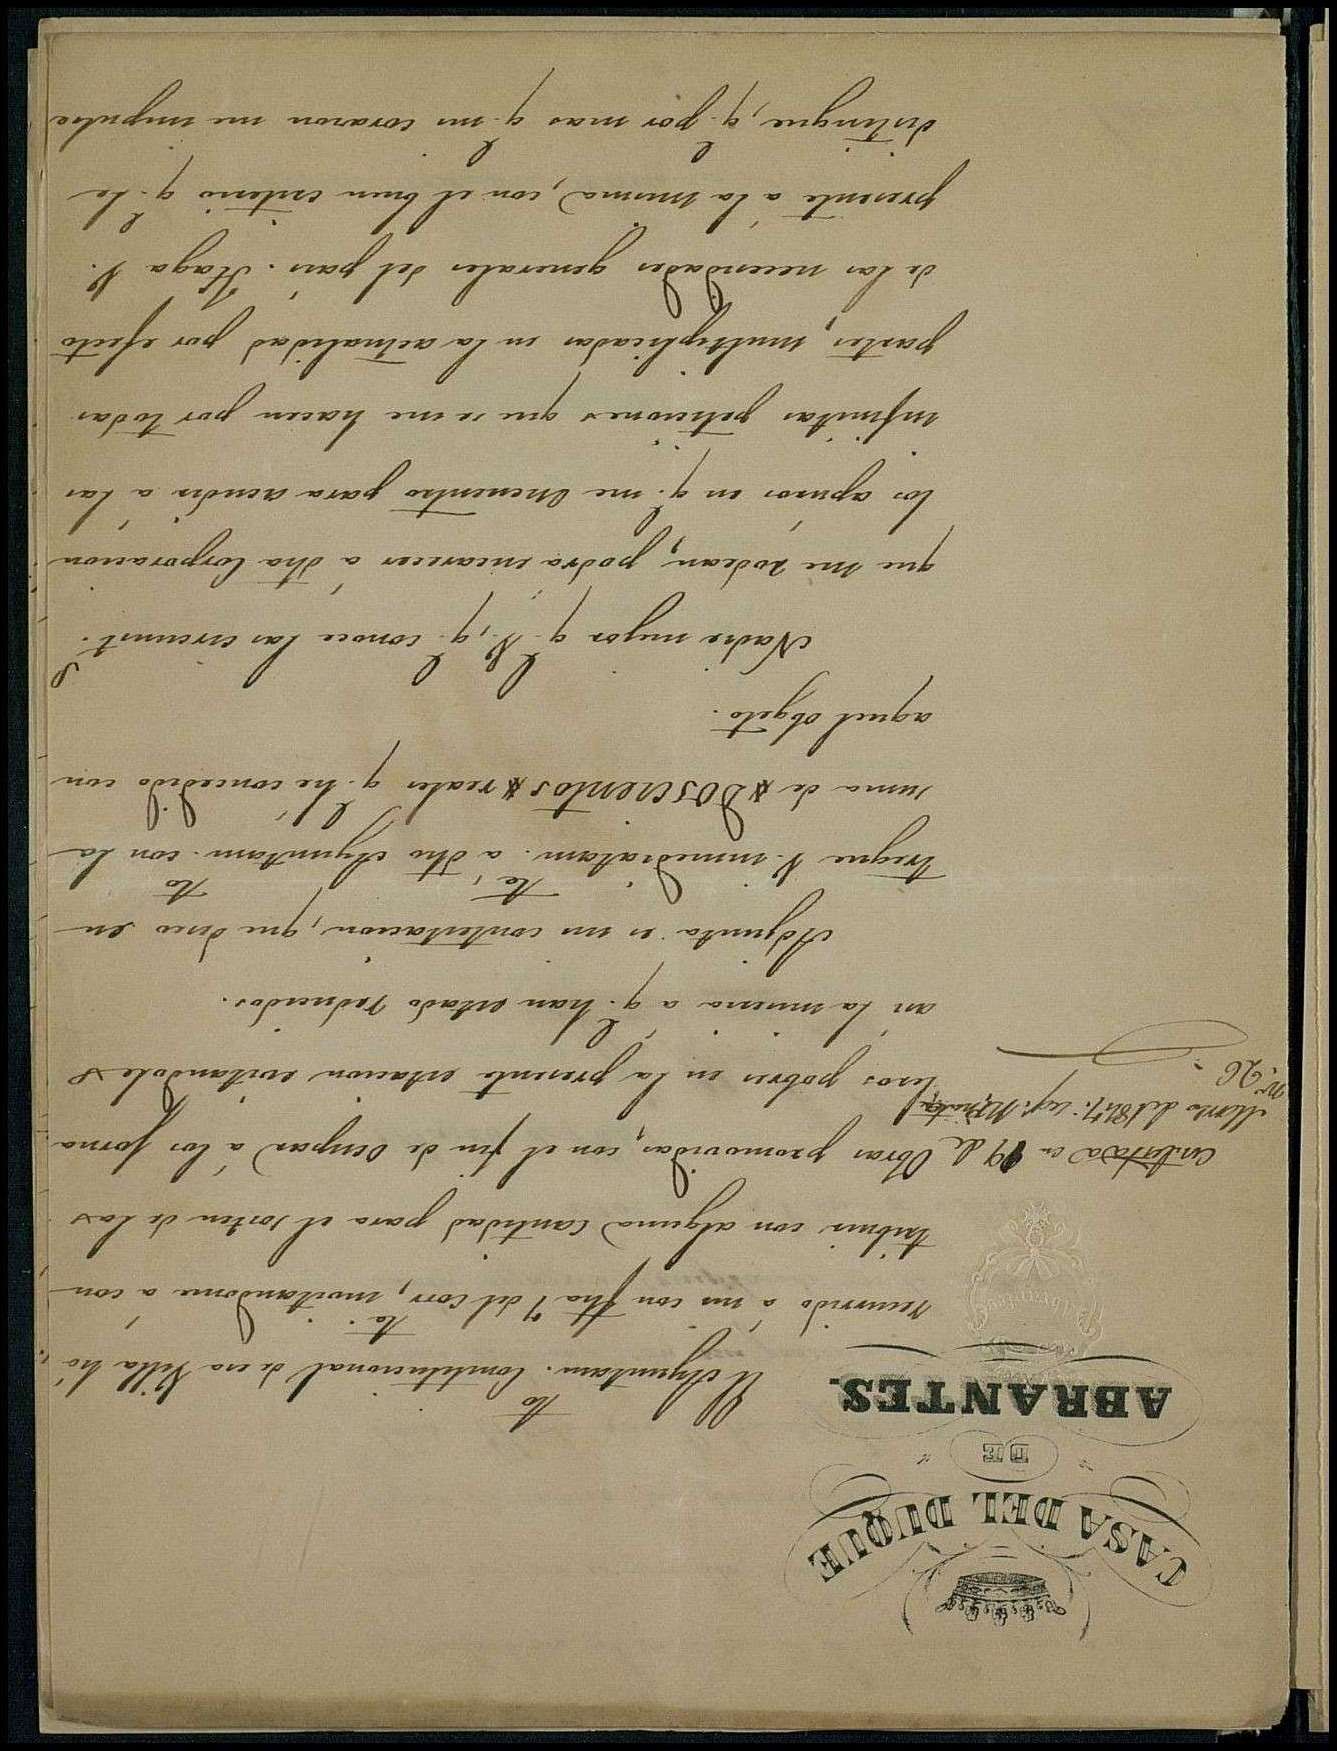 CASA DEL DUQUE
DE
ABRANTES.
El Ayuntam.to Constitucional de esa Villa há
recurrido á mi con fha 7 del corr.te, invitandome á con
tribuir con alguna cantidad para el sosten de las
Obras promovidas, con el fin de ocupar á los jorna
leros pobres en la presente estacion evitandoles
asi la miseria a q. han estado reducidos.
Adjunta es mi contestacion, que deseo en
tregue V. inmediatam.te á dho Ayuntam.to con la
suma de Doscientos reales q. he concedido con
aquel objeto.
Nadie mejor q. V., q. conoce las circunst.s
que me rodean, podra encarecer á dha Corporacion
los apuros en q. me encuentro para acudir a las
infinitas peticiones que se me hacen por todas
partes, multiplicadas en la actualidad por efecto
de las necesidades generales del pais. Haga V.
presente á la misma, con el buen criterio q. le
distingue, q. por mas q. mi corazon me impulse
Contestada en 19 de
Marzo del 1847: Leg. Minutas
nº. 26